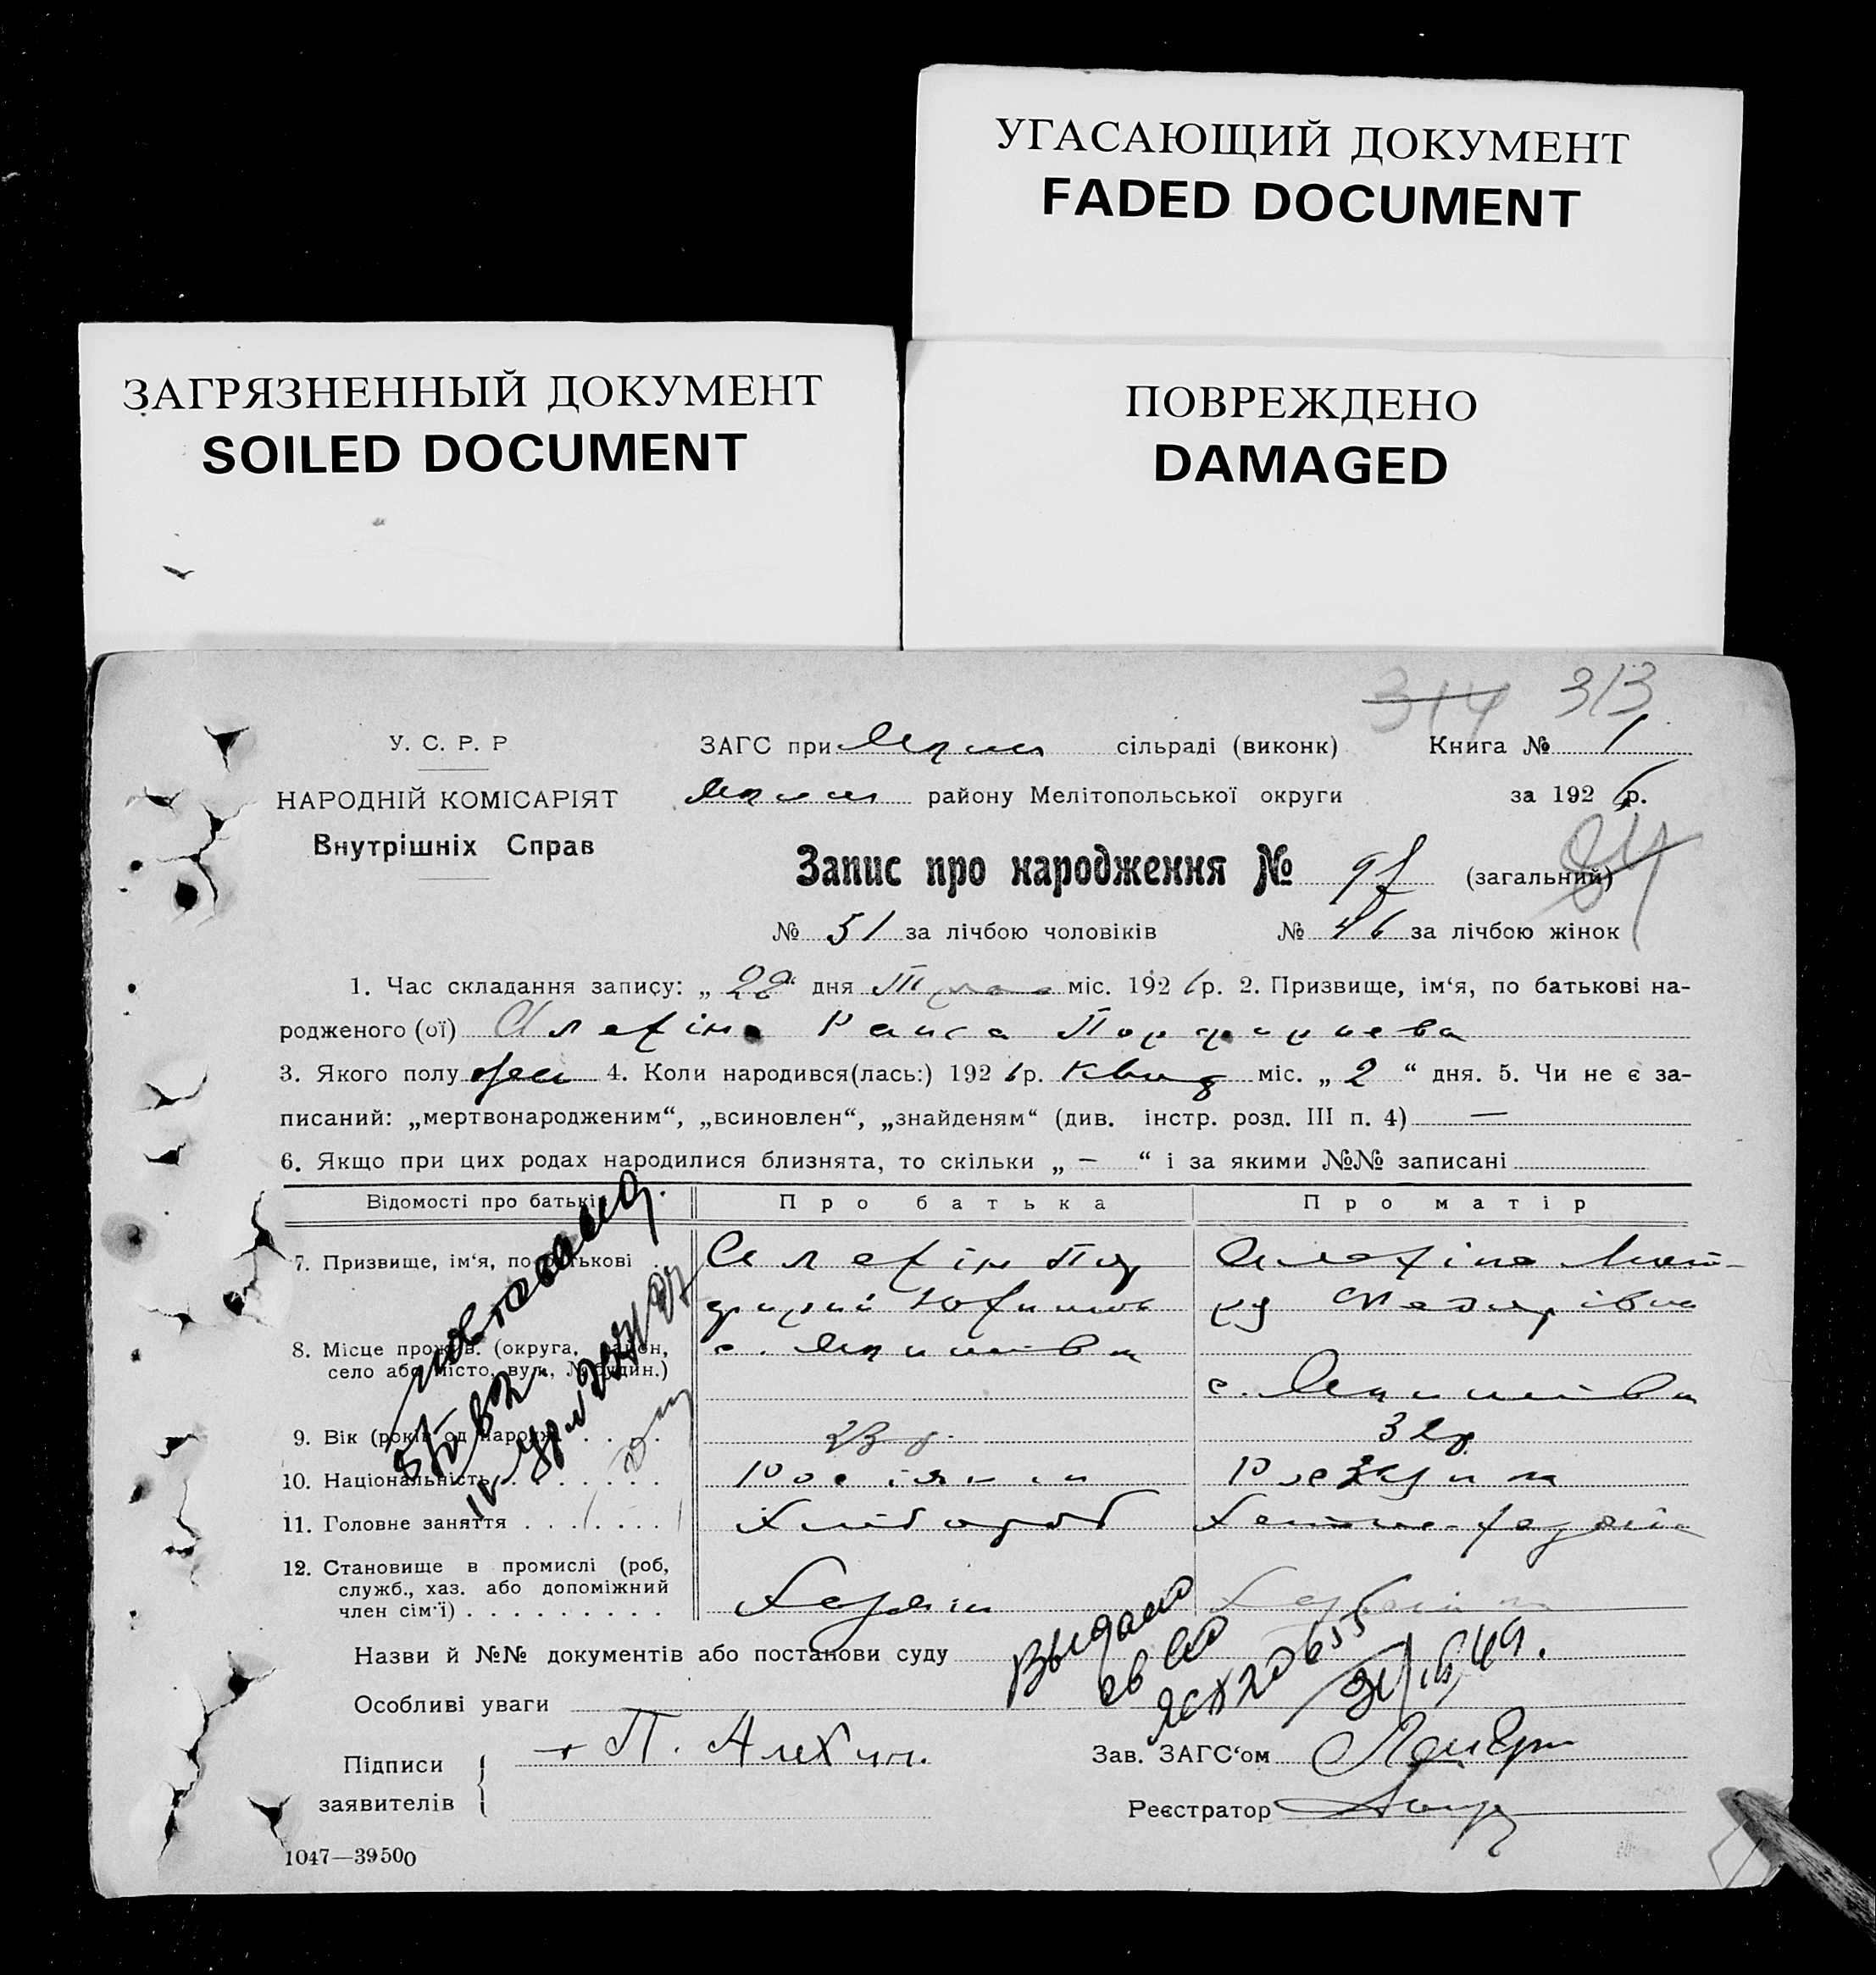 УГАСАЮЩИЙ ДОКУМЕНТ
FADED DOCUMENT
ЗАГРЯЗНЕННЫЙ ДОКУМЕНТ
SOILED DOCUMENT
ПОВРЕЖДЕНО
DAMAGED
314 313
У. С. Р. Р
НАРОДНІЙ КОМІСАРІЯТ
Внутрішніх Справ
ЗАГС при сільраді (виконк) Книга № 1
району Мелітопольської округи за 1926 р.
Запис про народження № 97 (загальний) 84
№ 51 за лічбою чоловіків № 46 за лічбою жінок
1. Час складання запису: „ 22 “ дня міс. 1926 р. 2. Призвище, ім‘я, по батькові на-
родженого (ої) Алехіна Раиса
3. Якого полу жен 4. Коли народився(лась:) 1926 р. міс. „ 2 “ дня. 5. Чи не є за-
писаний: „мертвонародженим“, „всиновлен“, „знайденям“ (див. інстр. розд. III п. 4) —
6. Якщо при цих родах народилися близнята, то скільки „ — “ і за якими №№ записані
Відомості про батьків Про батька Про матір
7. Призвище, ім‘я, по батькові Алехін Пор Алехіна
фирий
8. Місце прожив. (округа, район, с.
село або місто, вул., № будин.) с.
9. Вік (років од народж. 32 р.
10. Національність Росіянин
11. Головне заняття Хлібороб
12. Становище в промислі (роб,
служб., хаз. або допоміжний
член сім‘ї) Хазяїн
Назви й №№ документів або постанови суду Выдано
Особливі уваги
Підписи П. Алехин. Зав. ЗАГС‘ом
заявителів Реєстратор
1047—39500